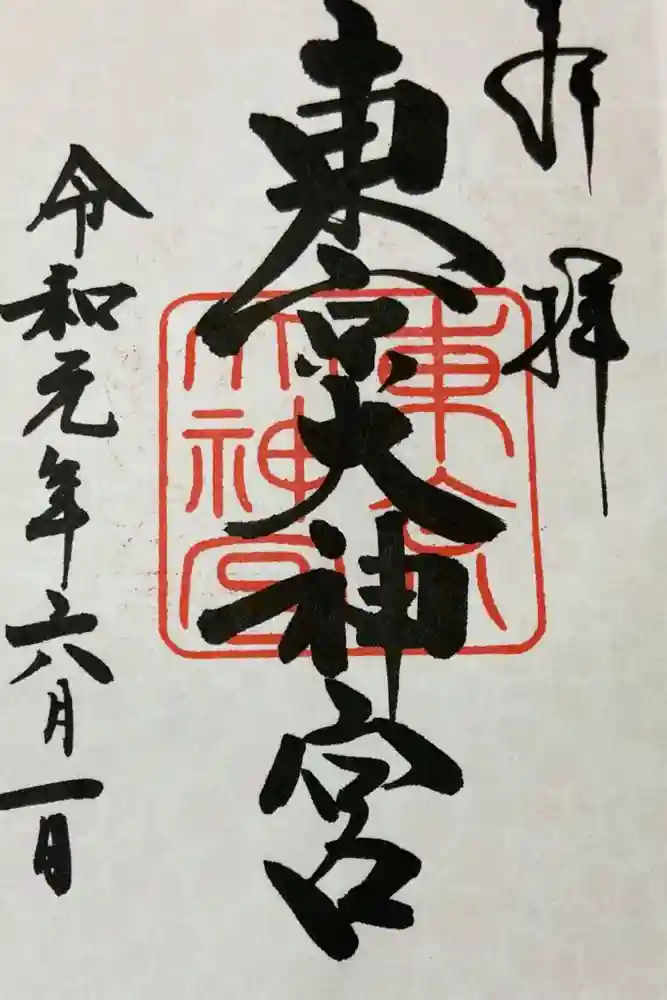 奉拝
東京大神宮
令和元年六月一日
東京大神宮